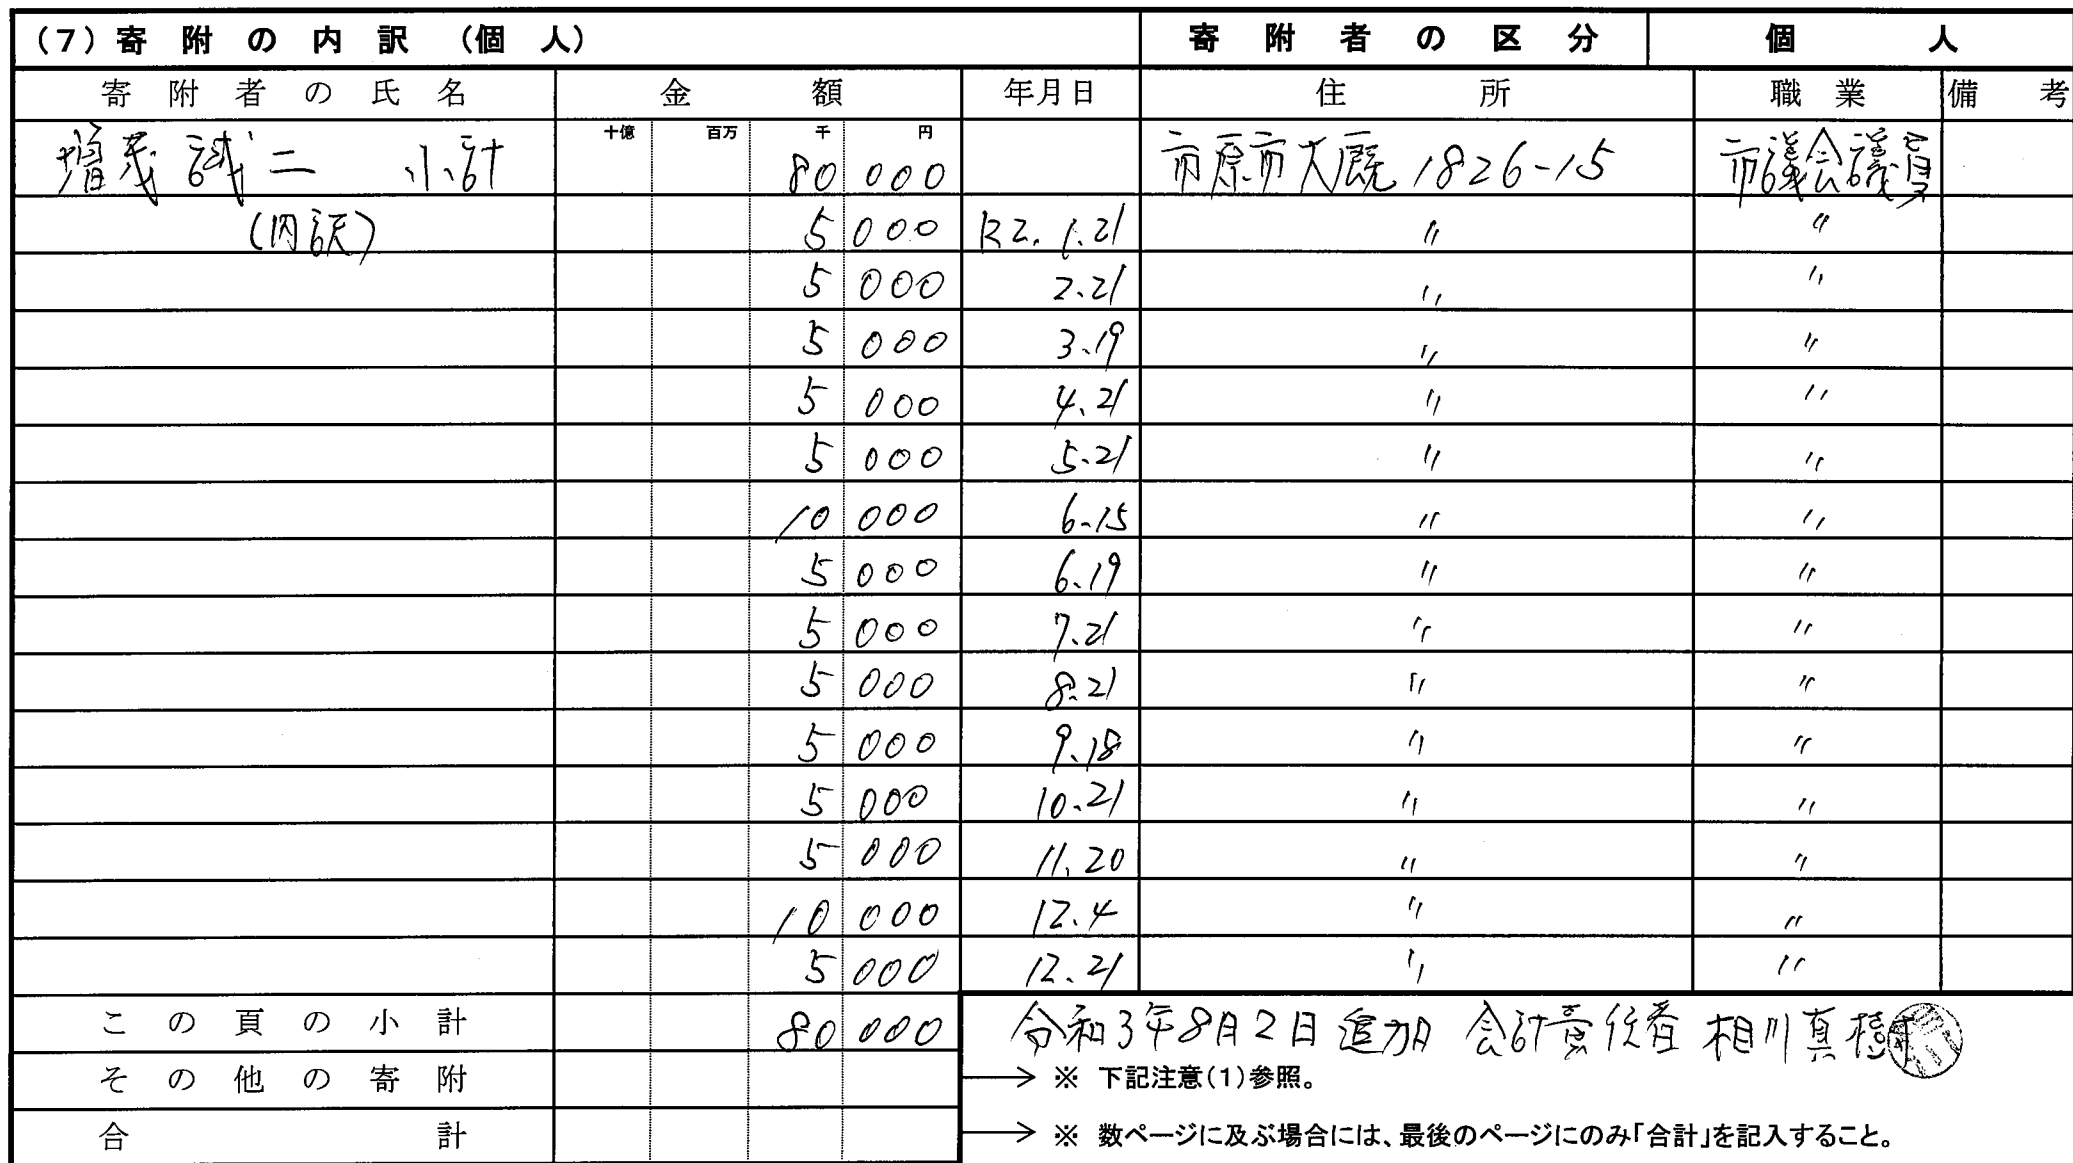 (7)寄附の内訳(個人) 寄附者の区分 個人
寄附者の氏名 金額 年月日 住所 職業 備考
十億 百万 千 円
増茂誠二 小計 80 000 市原市大厩1826-15 市議会議員
(内訳) 5 000 R2.1.21 〃 〃
5 000 2.21 〃 〃
5 000 3.19 〃 〃
5 000 4.21 〃 〃
5 000 5.21 〃 〃
10 000 6.15 〃 〃
5 000 6.19 〃 〃
5 000 7.21 〃 〃
5 000 8.21 〃 〃
5 000 9.18 〃 〃
5 000 10.21 〃 〃
5 000 11.20 〃 〃
10 000 12.4 〃 〃
5 000 12.21 〃 〃
この頁の小計 80 000 令和3年8月2日追加 会計責任者 相川真樹
その他の寄附 → ※ 下記注意(1)参照。
合計 → ※ 数ページに及ぶ場合には、最後のページにのみ「合計」を記入すること。